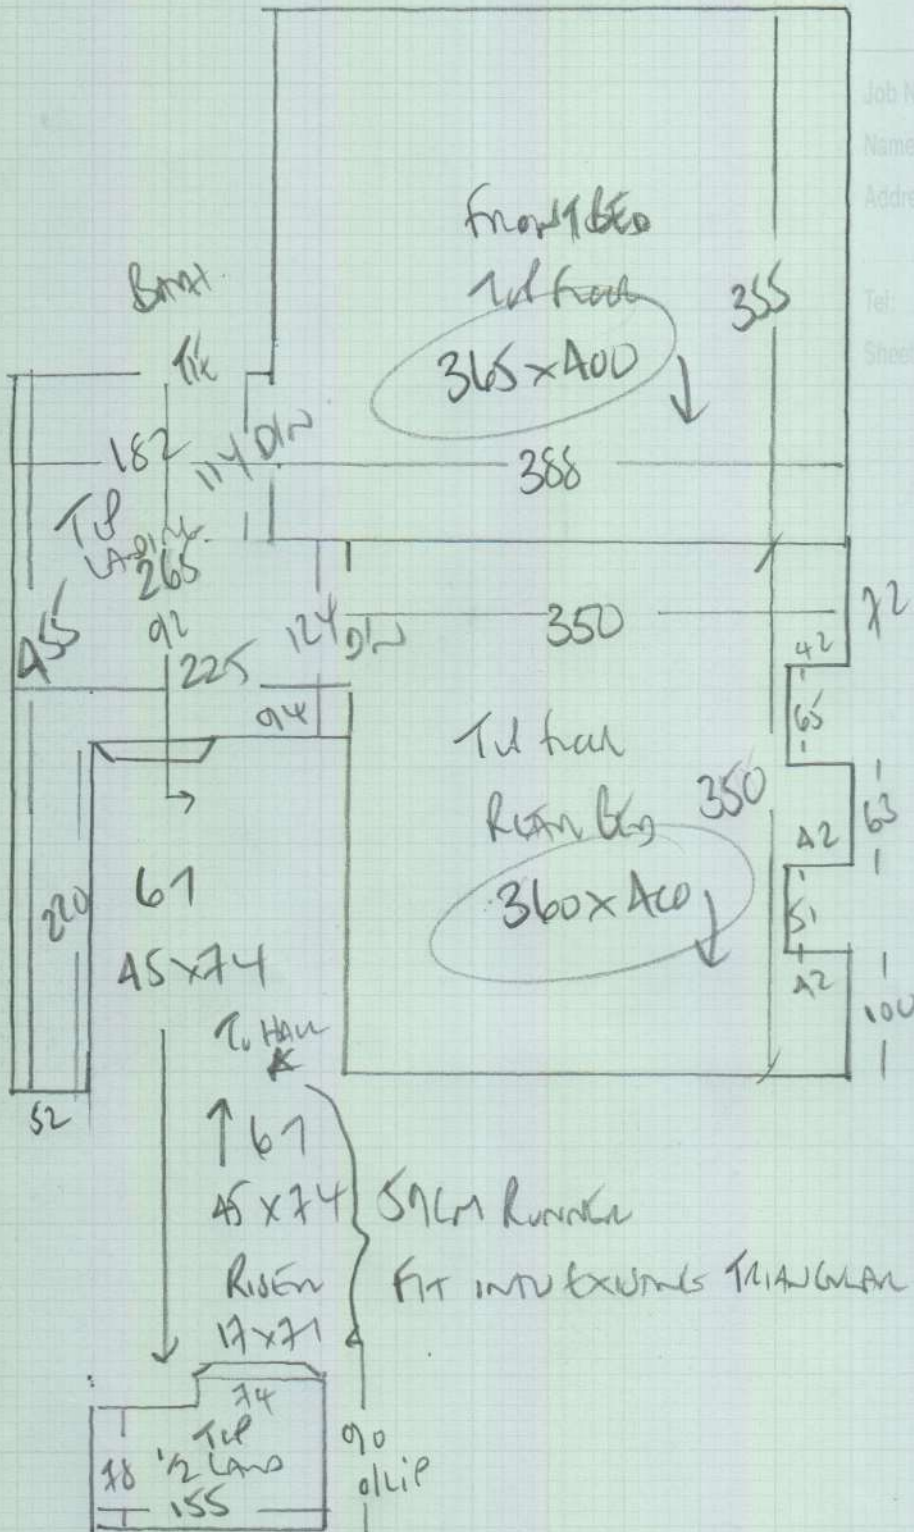 Job N
Name
Addre
Tel:
Sheet
FRONT BED
TOP FLOOR
365 x 400
355
BATH
182
114 DIN
388
TOP
LANDING
265
92
455
225
124 DIN
94
350
72
42
65
TOP FLOOR
REAR BED
350
63
360 x 400
42
51
42
100
220
67
45 x 74
52
TO HALL
67
45 x 74
RISER
17 x 71
RUNNER
FIT INTO EXISTING TRIANGULAR
74
TOP
1/2 LAND
78
155
90
o/LIP